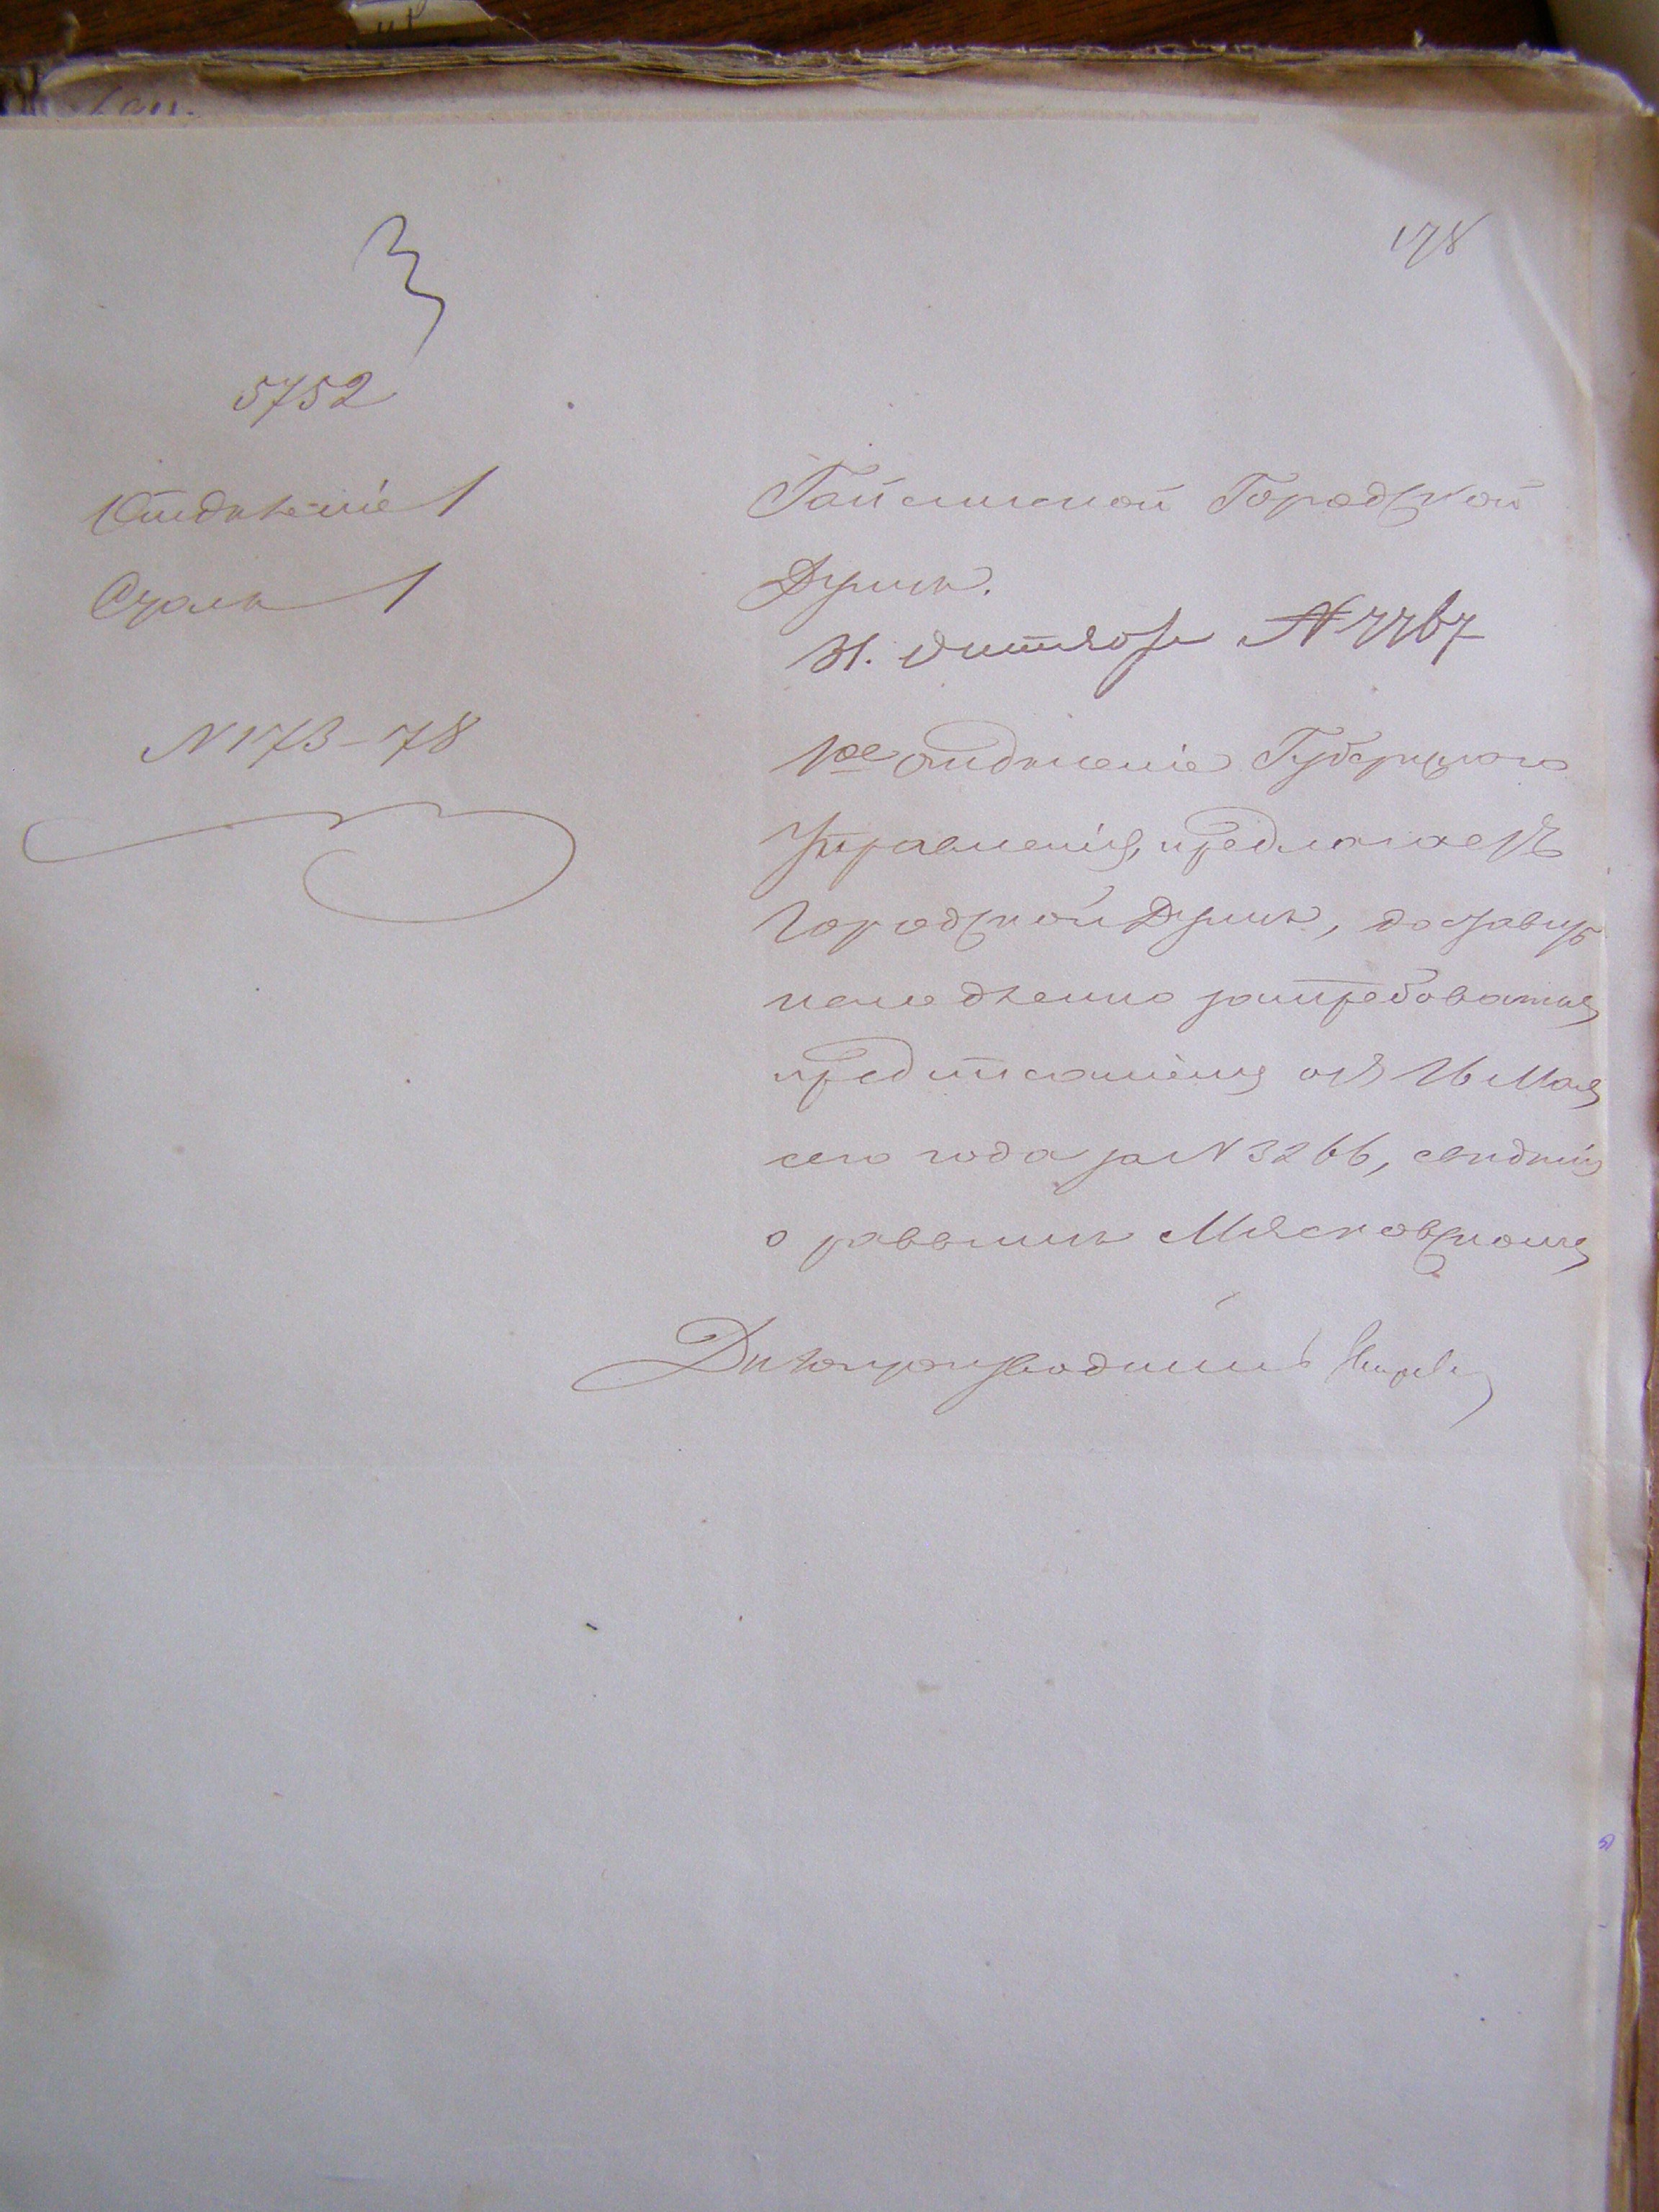 178
5752
Отдѣленіе 1
Столъ 1
N 173-78
Гайсинской Городской
Думѣ.
31. Октября № 7767
1ое отдѣленіе Губернскаго
Управленія, предлагаетъ
Городской Думѣ, доставить
немедленно затребованныя
предписаніемъ отъ 26 Мая
сего года за N 3266, свѣдѣнія
о раввинѣ Мясковскомъ
Дѣлопроизводитель